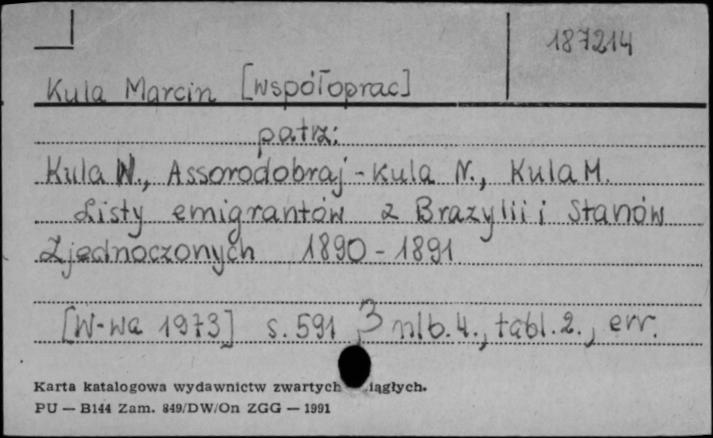 187214
Kula Marcin [współoprac]
patrz:
Kula W., Assorodobraj-Kula N., Kula M.
Listy emigrantów z Brazylii i Stanów
Zjednoczonych 1890-1891
[W-wa 1973] s. 591, 3 nlb. 4., tabl. 2., err.
Karta katalogowa wydawnictw zwartych iągłych.
PU — B144 Zam. 849/DW/On ZGG — 1991